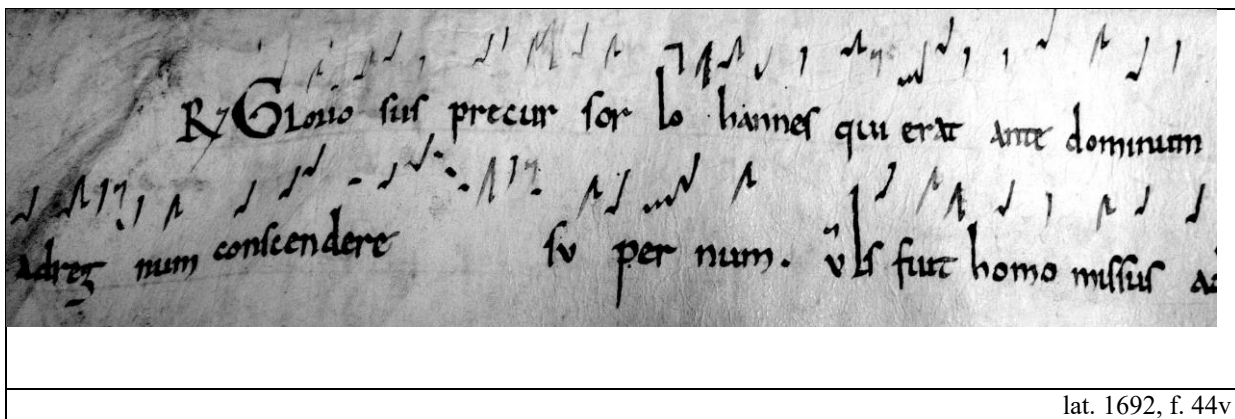 R/ Glorio sus precur sor Io hannes qui erat ante dominum
ad reg num conscendere su per num. v ls fuit homo missus ad
lat. 1692, f. 44v